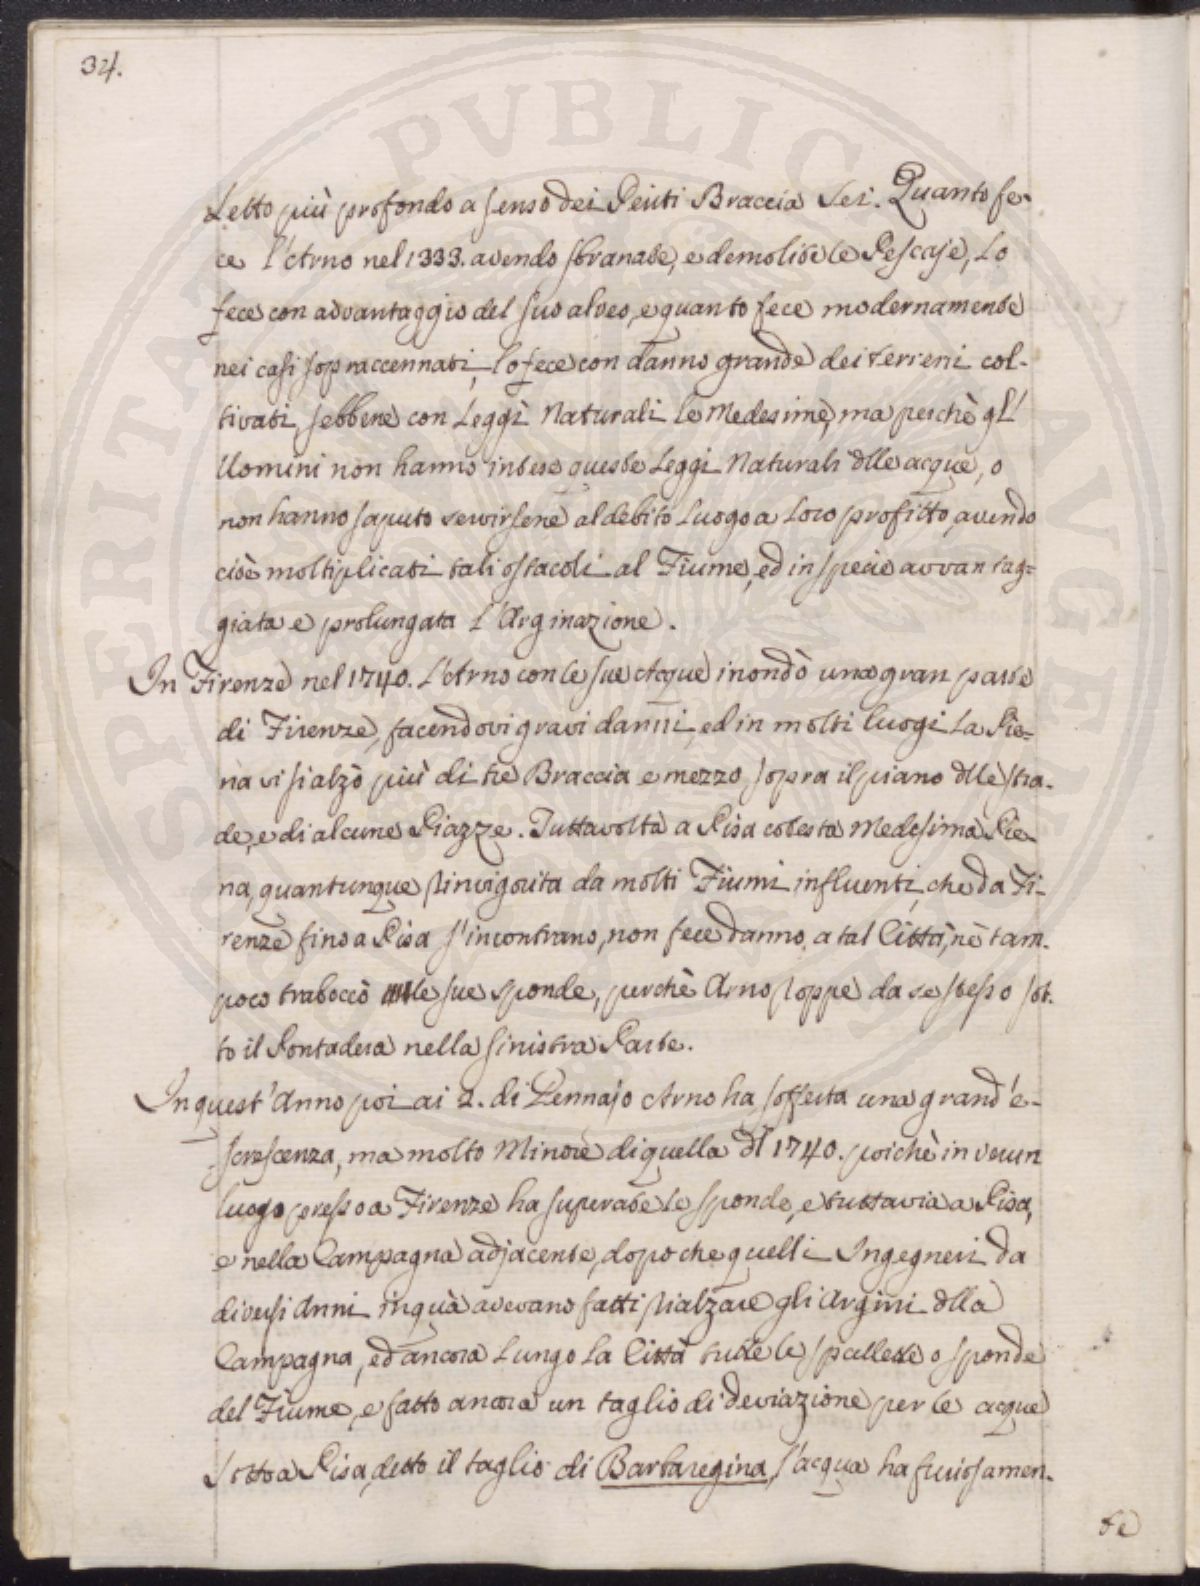 34.
Letto più profondo a senso dei Periti Braccia Sei. Quanto fe-
ce l'Arno nel 1333. avendo sbranate, e demolite le Pescaje, lo
fece con advantaggio del suo alveo, e quanto fece modernamente
nei casi sopraccennati, lo fece con danno grande dei terreni col-
tivati, sebbene con Leggi Naturali le Medesime, ma perchè gl'
Uomini non hanno intese queste Leggi Naturali dlle acque, o
non hanno saputo servirsene al debito luogo a loro profitto, avendo
cioè moltiplicati tali ostacoli al Fiume, ed in specie avvantag=
giata e prolungata l'Arginazione.
In Firenze nel 1740. l'Arno con le sue Acque inondò una gran parte
di Firenze, facendovi gravi danni, ed in molti luogi la Pie=
na vi si alzò più di tre Braccia e mezzo sopra il piano dlle stra-
de, e di alcune Piazze. Tuttavolta a Pisa cotesta Medesima Pie-
na, quantunque rinvigorita da molti Fiumi influenti, che da Fi-
renze fino a Pisa s'incontrano, non fece danno a tal Città, nè tam-
poco traboccò le sue sponde, perchè Arno roppe da se stesso sot-
to il Pontadera nella sinistra Parte.
In quest'Anno poi ai 2. di Gennajo Arno ha sofferta una grand'e-
screscenza, ma molto Minore di quella dl 1740. poichè in verun
luogo presso a Firenze ha superate le sponde, e tuttavia a Pisa,
e nella Campagna adjacente, dopo che quelli Ingegneri da
diversi Anni in quà avevano fatti rialzare gli Argini dlla
Campagna, ed ancora lungo la Città tutte le spallette o sponde
del Fiume, e fatto ancora un taglio di deviazione per le acque
sotto a Pisa, detto il taglio di Barbaregina, l'acqua ha furiosamen-
te
PERITATI PUBLICAE AUGENDAE